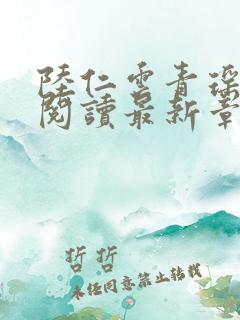 陸仁雲青瑤
閱讀最新章
哲哲
未经同意禁止转载